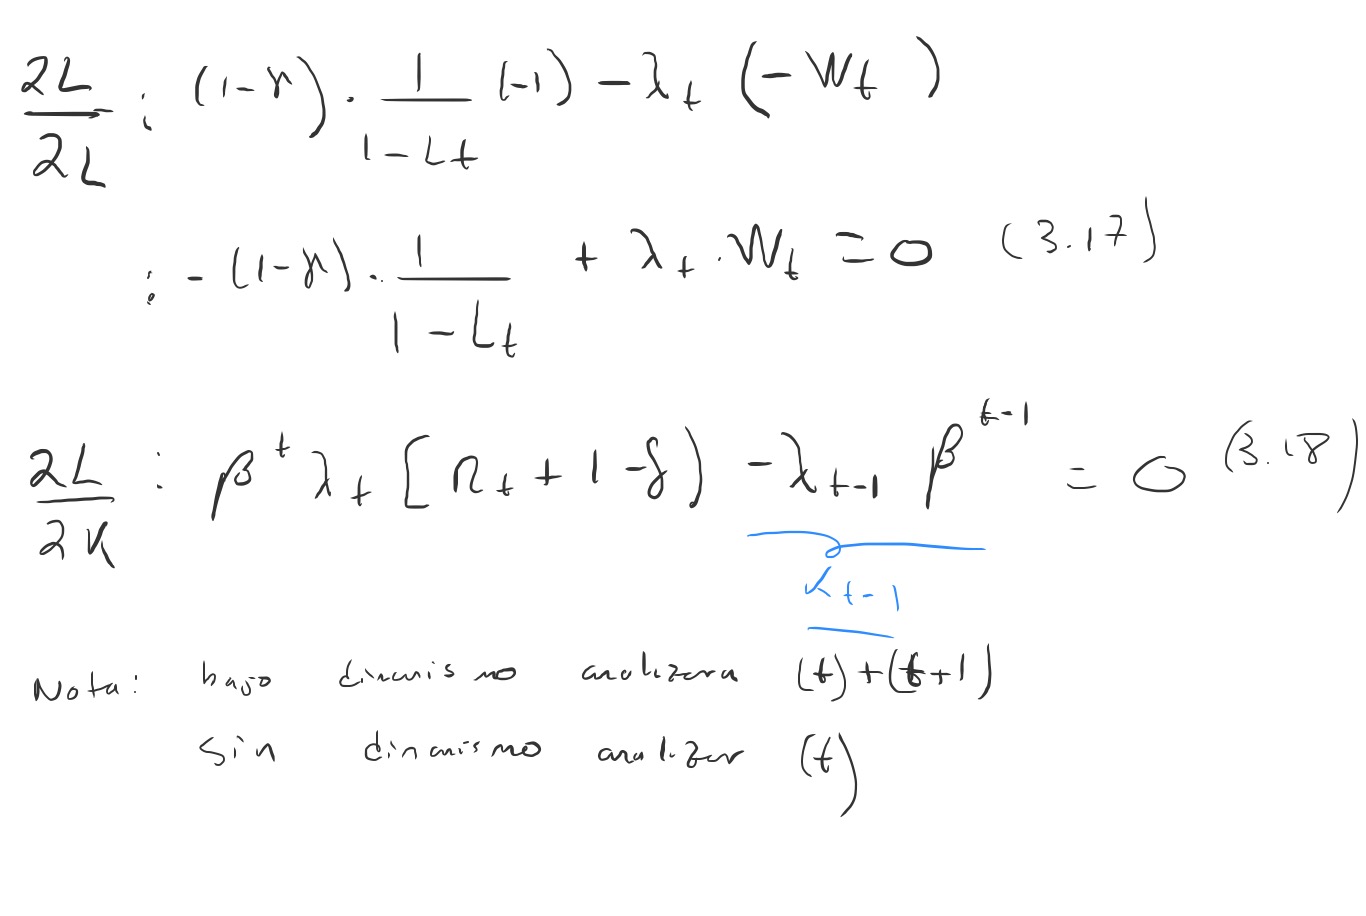 ∂L/∂L : (1-γ) · 1/(1-Lt) (-1) - λt (-Wt)
: -(1-γ) · 1/(1-Lt) + λt · Wt = 0 (3.17)
∂L/∂K : β^t λt [rt + 1 - δ) - λt-1 β^t-1 = 0 (3.18)
Kt-1
Nota: bajo dinamismo analizara (t) + (t+1)
sin dinamismo analizar (t)